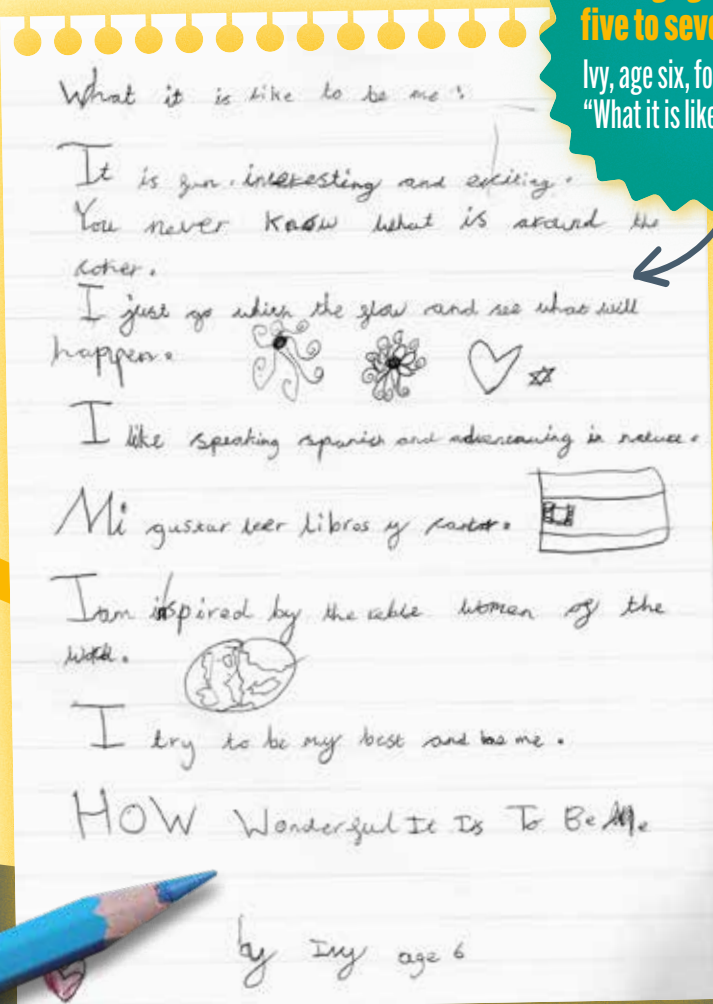 five to seve
Ivy, age six, fo
"What it is like
What it is like to be me!
It is fun. interesting and exciting.
You never know what is around the
coner.
I just go which the flow and see what will
happen.
I like speaking spanish and in nature.
Mi gustar leer libros y
I am inspired by the women of the
I try to be my best and be me.
HOW Wonderful It Is To Be Me
by Ivy age 6